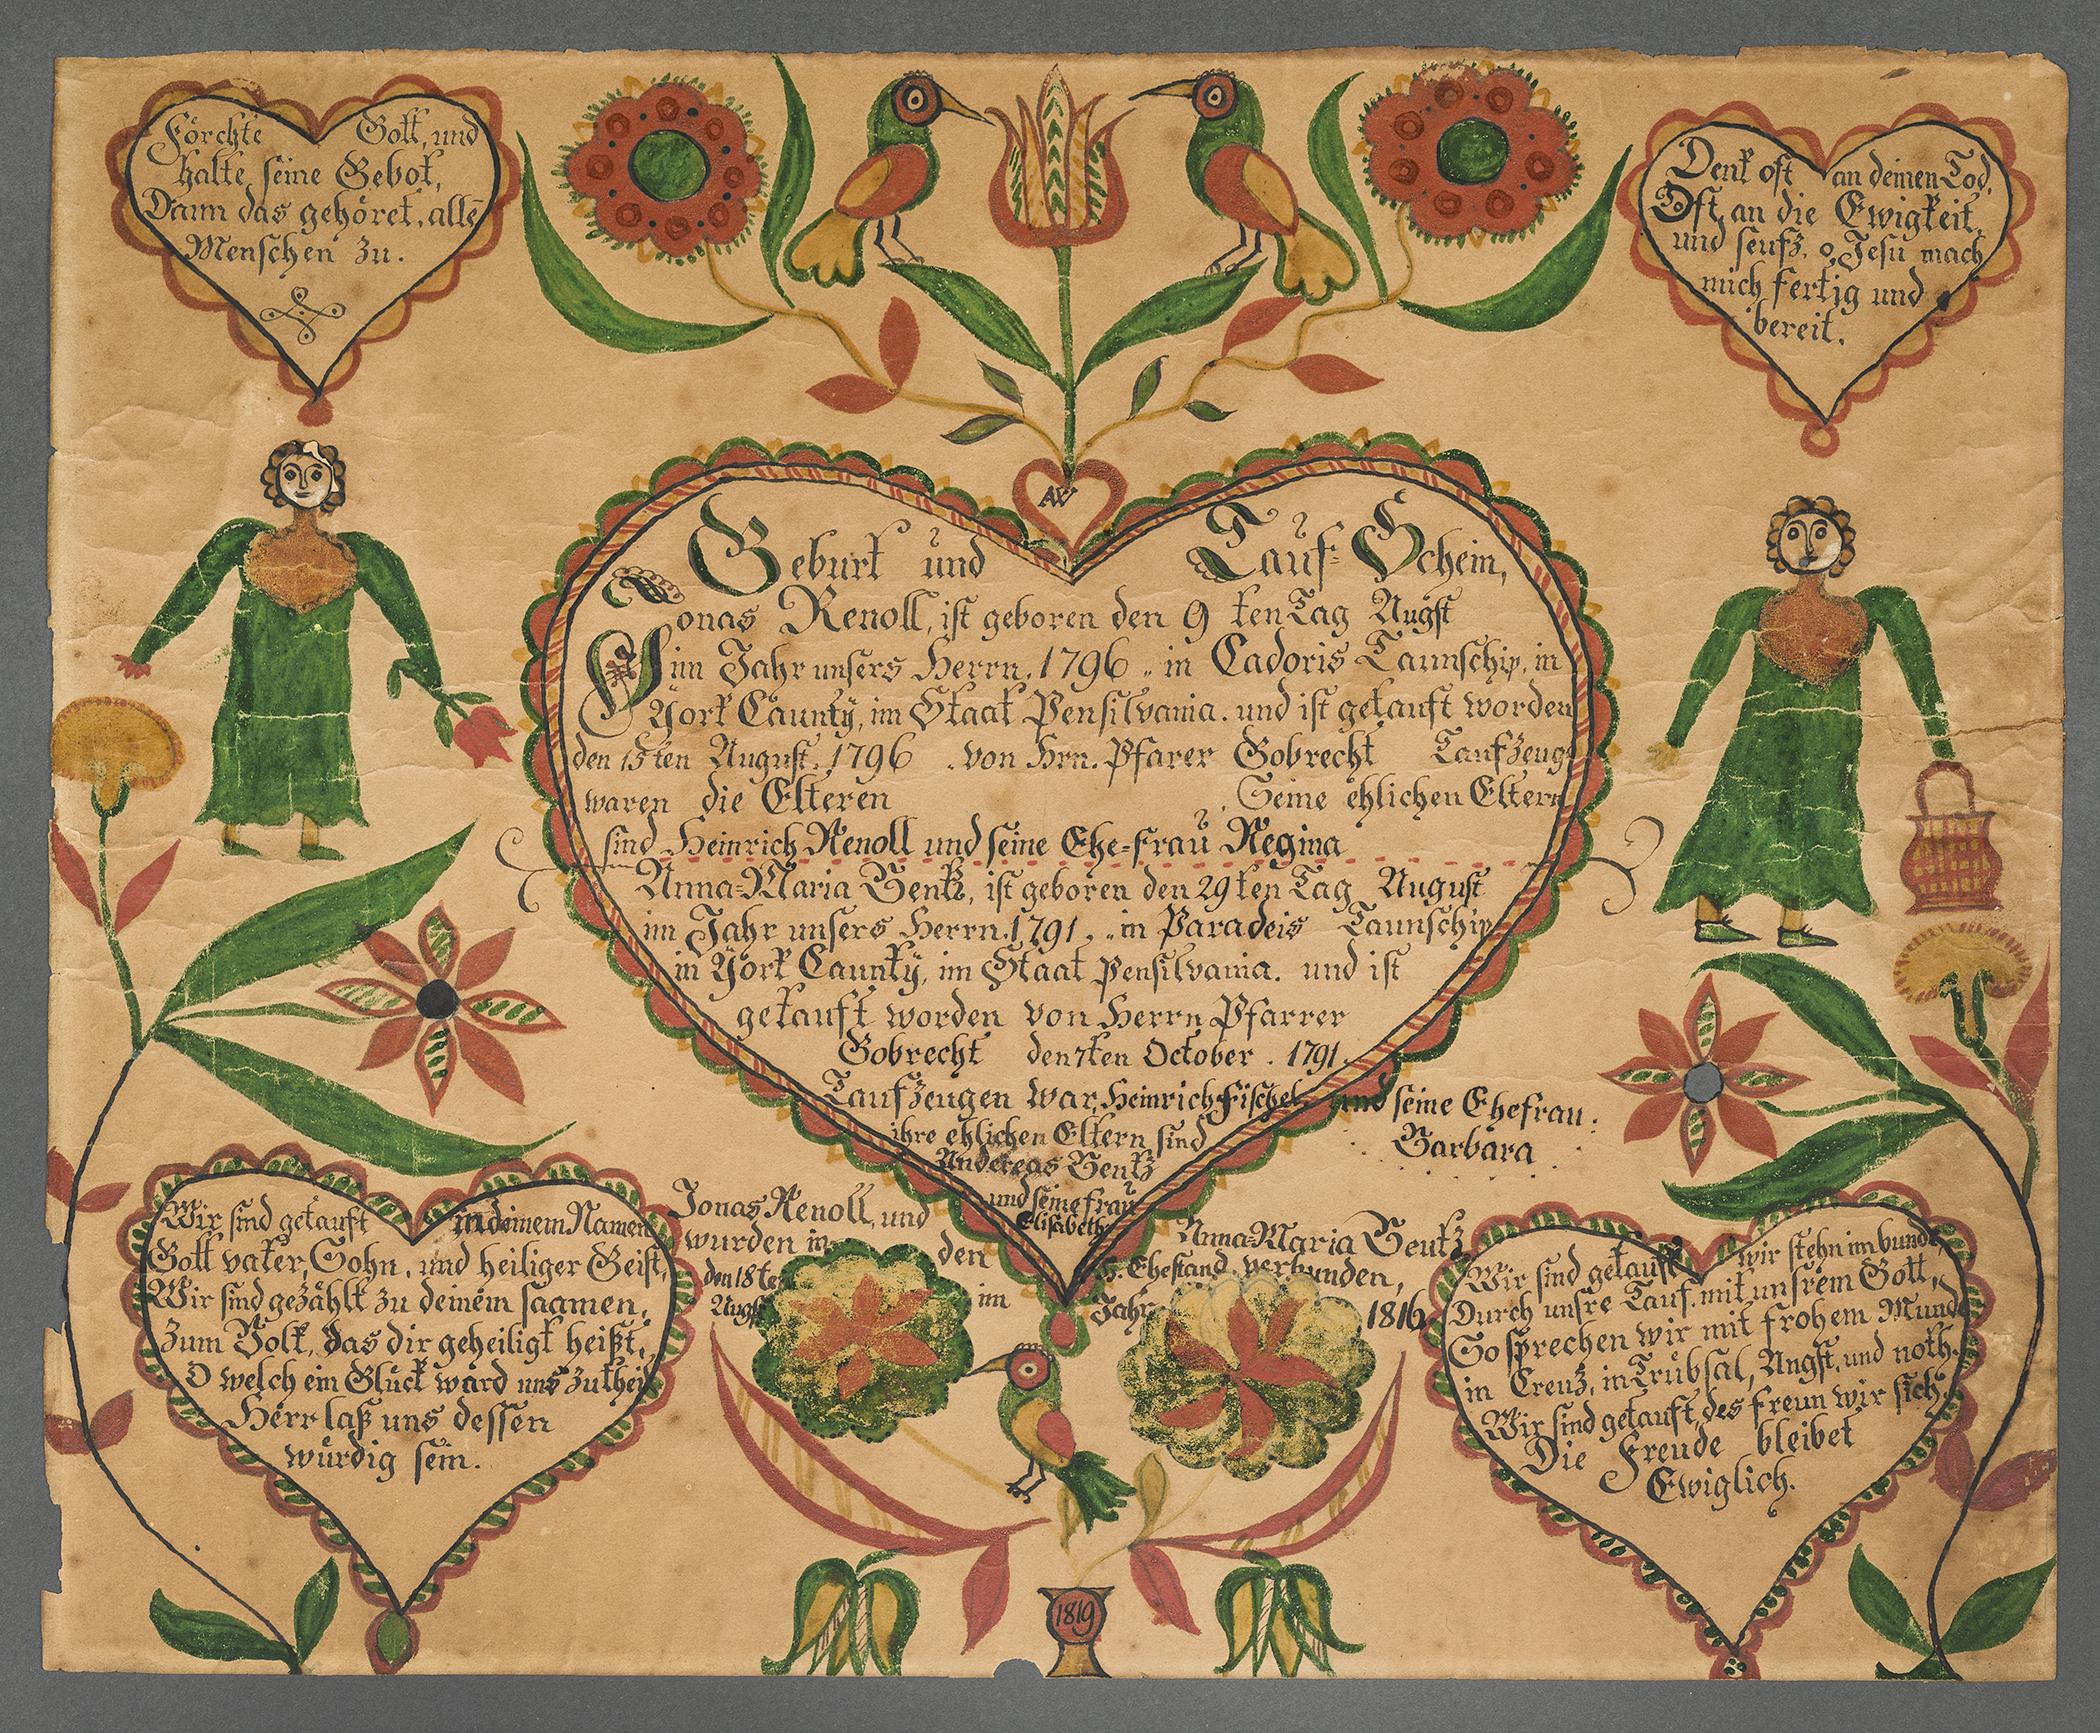 Förchte Gott, und
halte seine Gebot,
Dann das gehöret, alle
Menschen zu.
Denk oft an deinen Tod,
Oft, an die Ewigkeit,
und seufz, o Jesu mach
mich fertig und
bereit.
AW
Geburt und Tauf-Schein,
Jonas Renoll, ist geboren den 9 ten Tag Augst
im Jahr unsers Herrn, 1796 „ in Cadoris Taunschip, in
York Caunty, im Staat Pensilvania. und ist getauft worden
den 15 ten August, 1796 . von Hrn. Pfarer Gobrecht Taufzeug
waren die Elteren Seine ehlichen Eltern
sind Heinrich Renoll und seine Ehe-frau Regina
Anna-Maria Sentz, ist geboren den 29 ten Tag August
im Jahr unsers Herrn. 1791, „ in Paradeis Taunschip
in York Caunty, im Staat Pensilvania. und ist
getauft worden von Herrn Pfarrer
Gobrecht den 7ten October . 1791.
Taufzeugen war, Heinrich Fischel, und seine Ehefrau.
Barbara
ihre ehlichen Eltern sind
Andereas Sentz
und seine frau
Elisabeth
Jonas Renoll, und Anna-Maria Sentz
wurden in den H. Ehestand verbunden,
den 18 te
Augst im Jahr 1816
Wir sind getauft in deinem Namen
Gott vater, Sohn, und heiliger Geist,
Wir sind gezählt zu deinem saamen,
Zum Volk, das dir geheiligt heißt,
O welch ein Glück ward uns zutheil
Herr laß uns dessen
würdig sein.
Wir sind getauft wir stehn im bunde,
Durch unsre Tauf, mit unsrem Gott,
So sprechen wir mit frohem Munde
in Creuz, in Trübsal, Angst, und noth.
Wir sind getauft, des freun wir sich,
Die Freude bleibet
Ewiglich.
1819